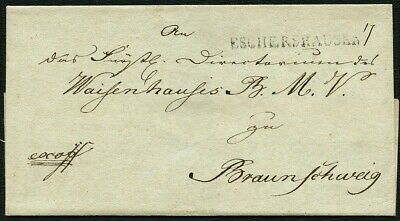 An
ESCHERSHAUSEN
das Fürstl. Directorium des
Waisenhauses B. M. V.
zu
exoff
Braunschweig